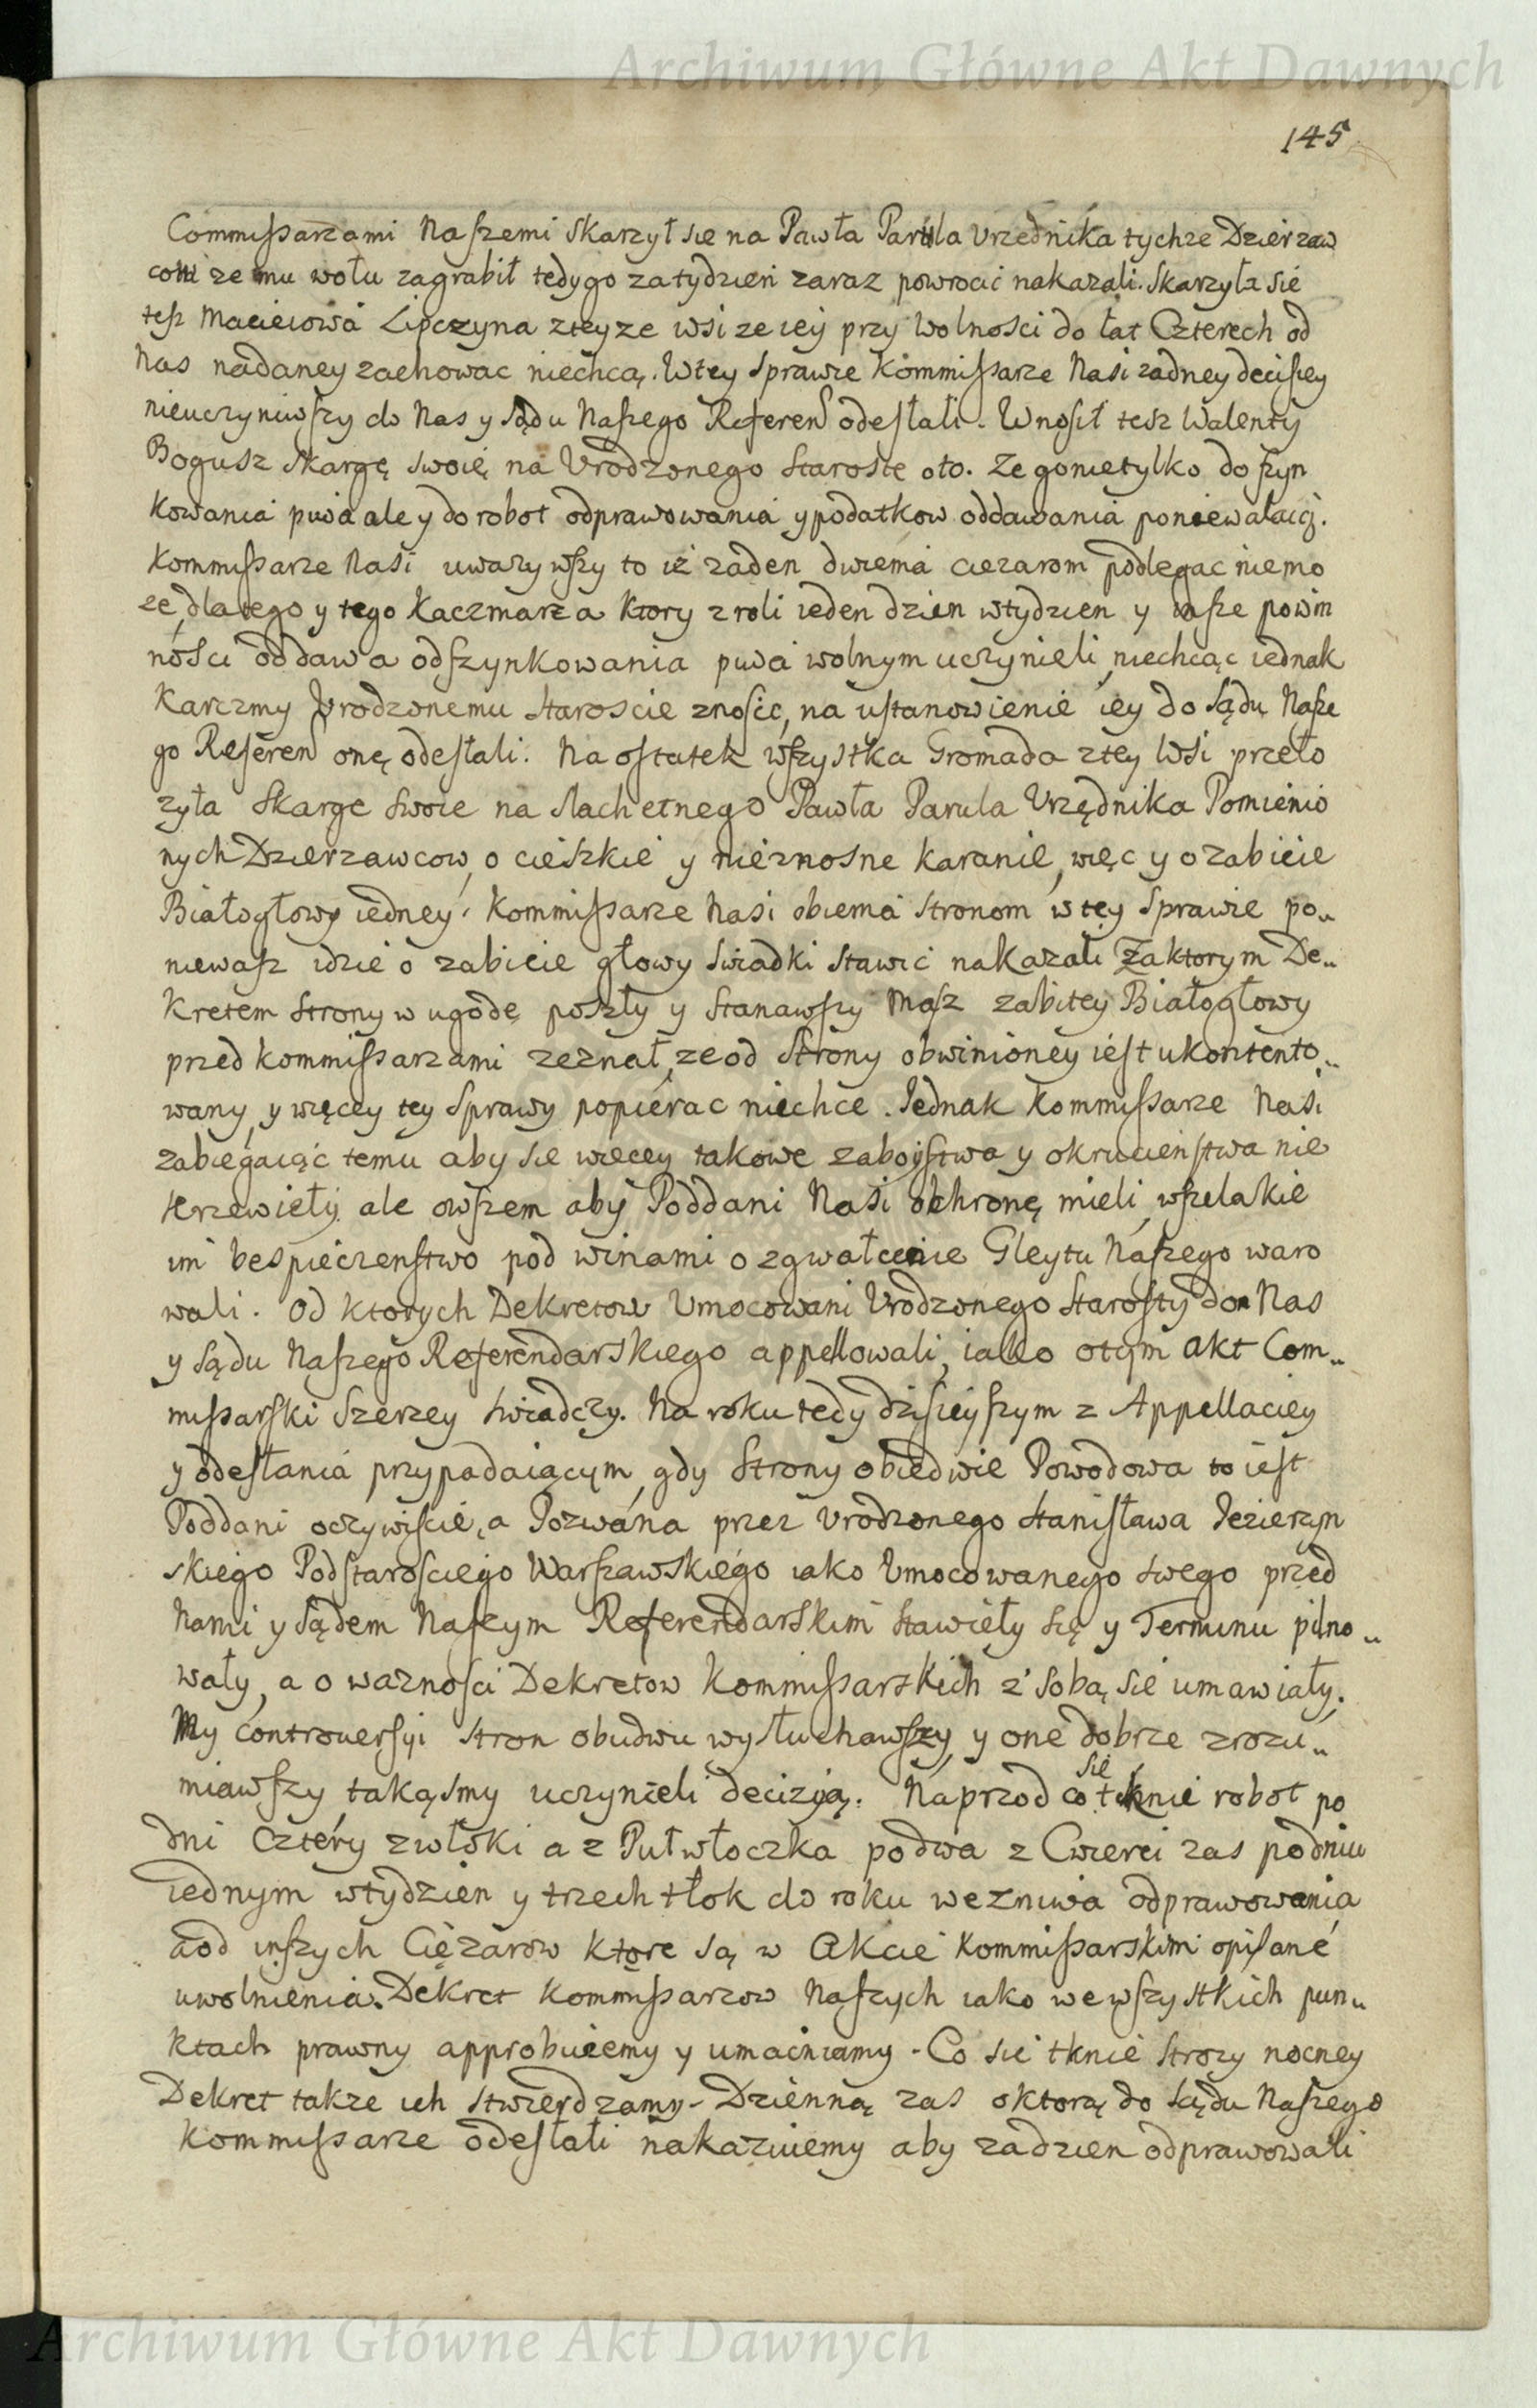 Archiwum Główne Akt Dawnych
145
Commissarzami Naszemi skarzył sie na Pawła Parula Vrzednika tychze Dzierzaw
cow ze mu wołu zagrabił tedy go za tydzien zaraz powrocic nakazali. Skarzyła sie
tesz Macieiowa Lipczyna z teyze wsi ze iey przy Wolnosci do łat Czterech od
Nas nadaney zachowac niechcą. W tey sprawie Kommissarze Nasi zadney decisiey
nieuczyniwszy do Nas y Sądu Naszego Referen odesłali. Wnosił tesz Walenty
Bogusz skargę swoię na Vrodzonego Staroste oto. Ze go nietylko do szyn
kowania piwa ale y do robot odprawowania y podatkow oddawania poniewalaią.
Kommissarze Nasi uwazywszy to iz zaden dwiema ciezarom podlegac niemo
ze, dlatego y tego Kaczmarza ktory z roli ieden dzien w tydzien y insze powin
nosci oddawa od szynkowania piwa wolnym uczynieli, niechcąc iednak
Karczmy Vrodzonemu Staroscie znosic, na ustanowienie iey do Sądu Nasze
go Referen onę odesłali. Na ostatek wszystka Gromada z tey Wsi przeło
zyła Skarge swoie na slachetnego Pawła Parula Vrzędnika Pomienio
nych Dzierzawcow, o cieszkie y nieznosne karanie, więc y o zabicie
Białogłowy iedney. Kommissarze Nasi obiema stronom w tey sprawie po„
niewasz idzie o zabicie głowy swiadki stawic nakazali Za ktorym De„
kretem strony w ugodę poszły y Stanawszy Mąsz zabitey Białogłowy
przed kommissarzami zeznał, ze od Strony obwinioney iest ukontento„
wany, y więcey tey Sprawy popierac niechce. Jednak Kommissarze Nasi
zabiegaiąc temu aby sie wiecey takowe zaboystwa y okrucienstwa nie
krzewieły ale owszem aby Poddani Nasi ochronę mieli, wszelakie
im bespieczenstwo pod winami o zgwałcenie Gleytu Naszego waro
wali. Od ktorych Dekretow Vmocowani Vrodzonego Starosty do Nas
y Sądu Naszego Referendarskiego appellowali, iako o tym Akt Com„
missarski szerzey swiadczy. Na roku tedy dzisieyszym z Appellaciey
y odesłania przypadaiącym, gdy Strony obiedwie Powodowa to iest
Poddani oczywiscie, a Pozwana przez Vrodzonego Stanisława Jezierzyn
skiego Podstarosciego Warszawskiego iako Vmocowanego swego przed
Nami y Sądem Naszym Referendarskim stawieły się y Terminu pilno„
wały, a o wazności Dekretow Kommissarskich z sobą sie umawiały.
My controuersyi stron obudwu wysłuchawszy, y one dobrze zrozu„
miawszy takąsmy uczynieli decizyą. Naprzod co się tknie robot po
dni cztery z włoki a z Pułwłoczka po dwa z Cwierci zas po dniu
iednym w tydzien y trzech tłok do roku we zniwa odprawowania
a od inszych Ciężarow ktore są w Akcie Kommissarskim opisane
uwolnienia. Dekret Kommissarzow Naszych iako we wszystkich pun„
ktach prawny approbuiemy y umacniamy. Co sie tknie strozy nocney
Dekret takze ich stwierdzamy. Dzienną zas o ktorą do Sądu Naszego
Kommissarze odesłali nakazuiemy aby za dzien odprawowali
Archiwum Główne Akt Dawnych